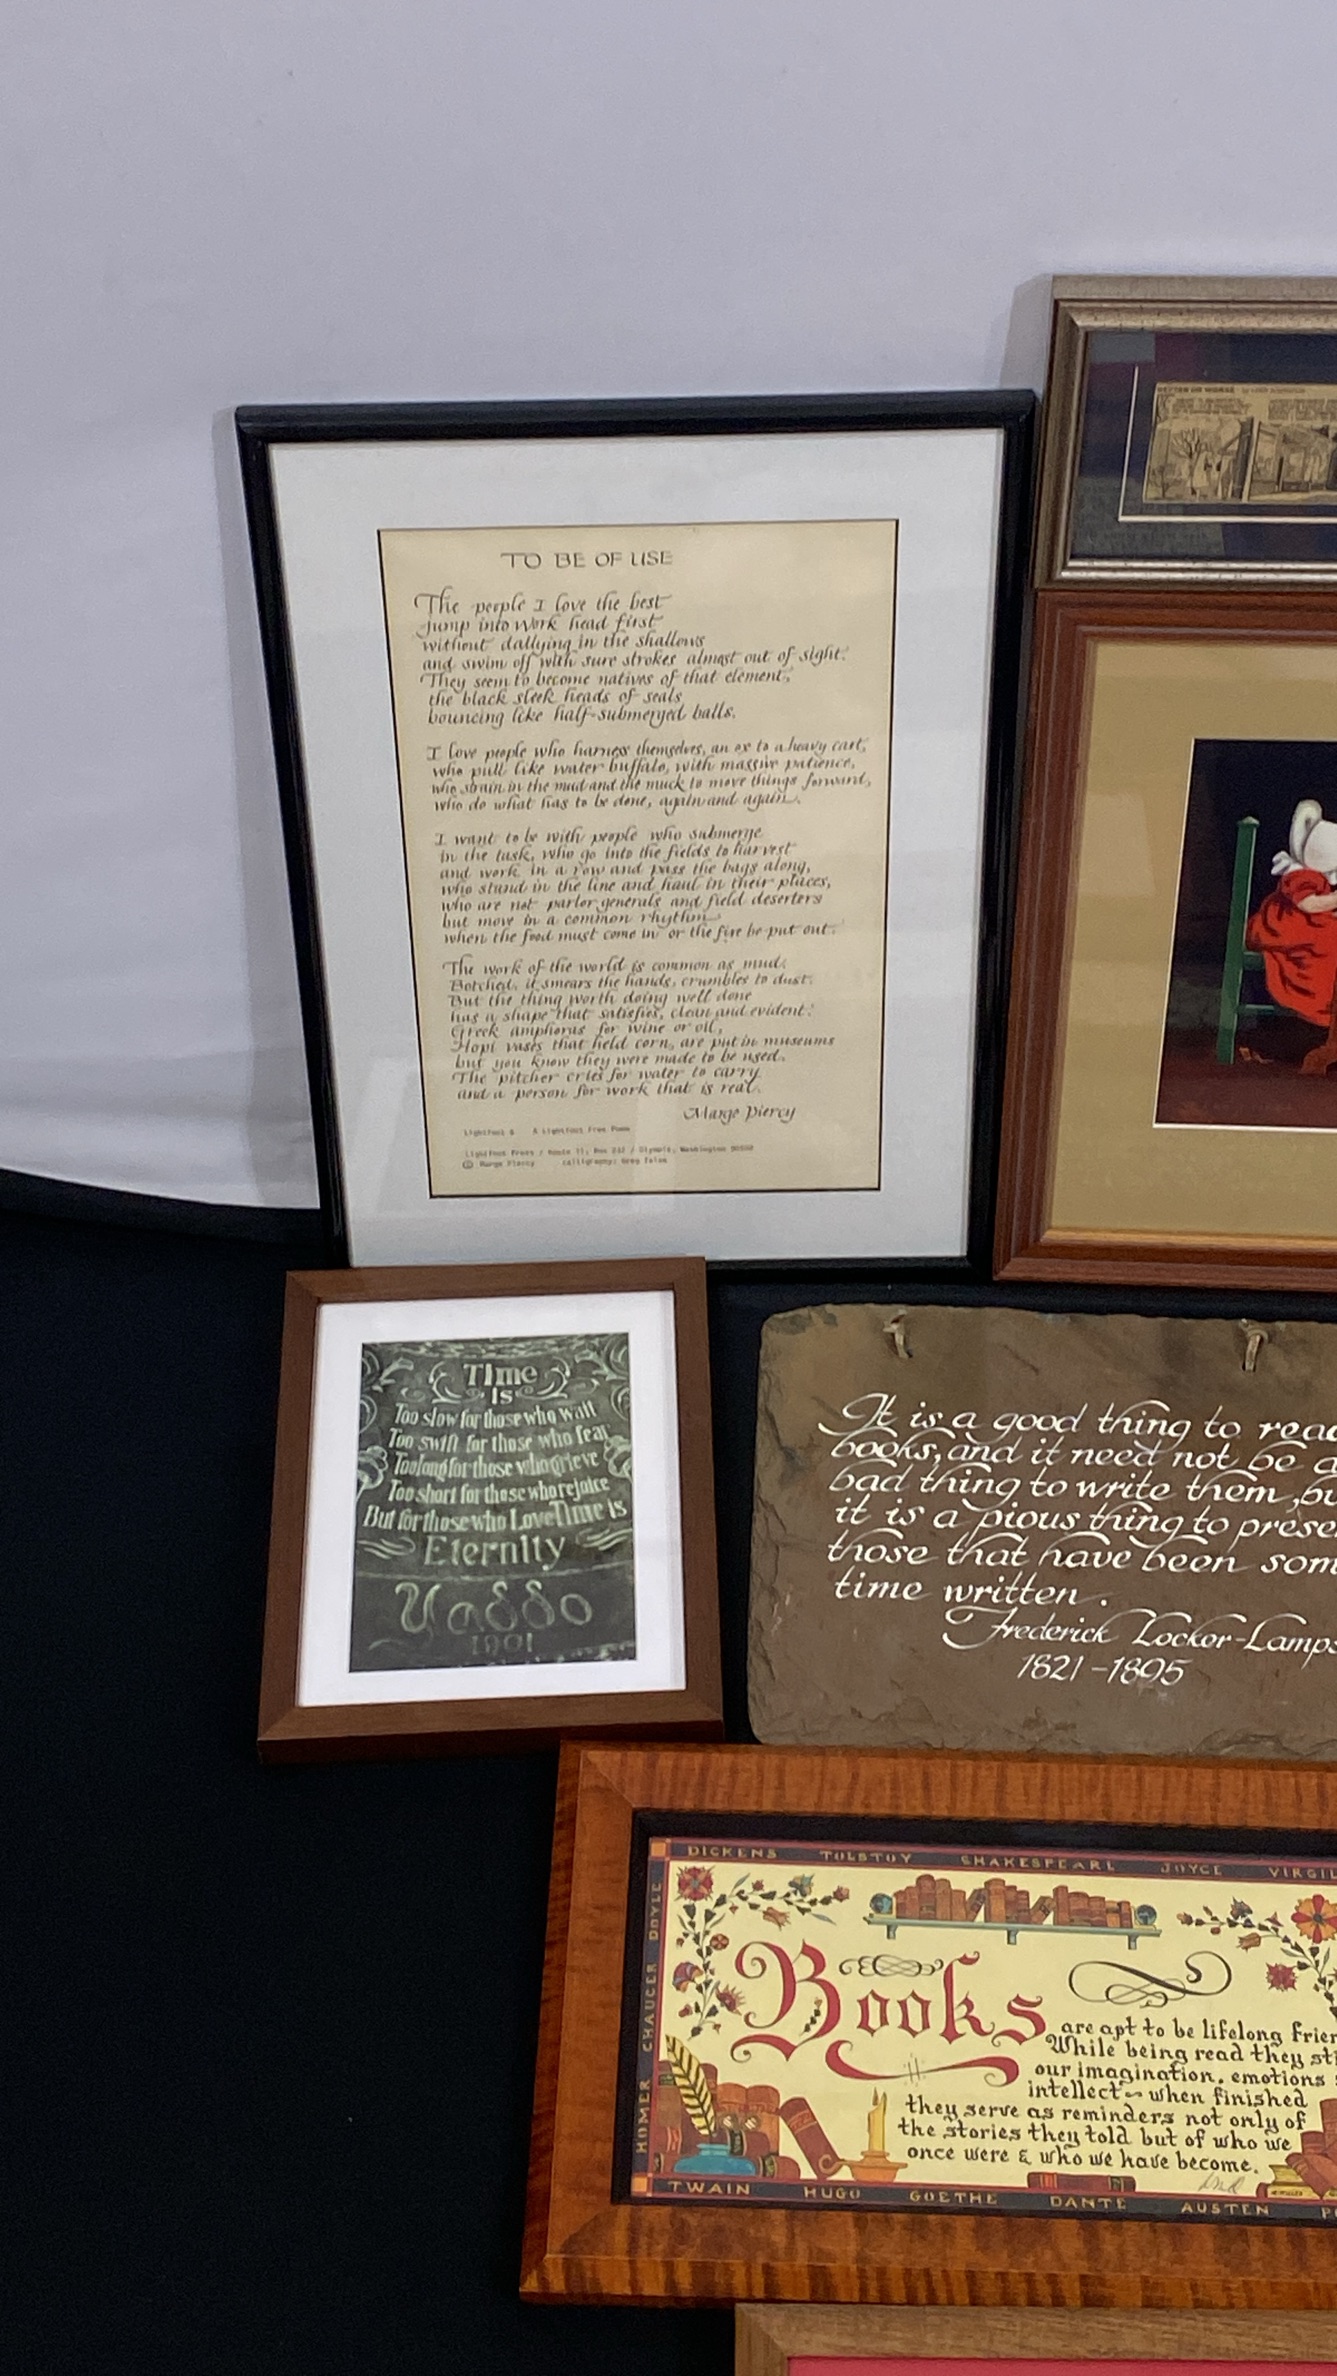 TO BE OF USE
The people I love the best
jump into work head first
without dallying in the shallows
and swim off with sure strokes almost out of sight.
They seem to become natives of that element,
the black sleek heads of seals
bouncing like half-submerged balls.
I love people who harness themselves, an ox to a heavy cart,
who pull like water buffalo, with massive patience,
who strain in the mud and the muck to move things forward,
who do what has to be done, again and again.
I want to be with people who submerge
in the task, who go into the fields to harvest
and work in a row and pass the bags along,
who stand in the line and haul in their places,
who are not parlor generals and field deserters
but move in a common rhythm
when the food must come in or the fire be put out.
The work of the world is common as mud.
Botched, it smears the hands, crumbles to dust.
But the thing worth doing well done
has a shape that satisfies, clean and evident.
Greek amphoras for wine or oil,
Hopi vases that held corn, are put in museums
but you know they were made to be used.
The pitcher cries for water to carry
and a person for work that is real.
Marge Piercy
A Lightfoot Free Poem
Lightfoot Press / Route / Olympia, Washington
© Marge Piercy calligraphy: Greg
Time
Is
Too slow for those who wait
Too swift for those who fear
Too long for those who grieve
Too short for those who rejoice
But for those who Love Time is
Eternity
Yaddo
1901
It is a good thing to read
books, and it need not be a
bad thing to write them, bu
it is a pious thing to prese
those that have been som
time written.
Frederick Locker-Lamps
1821-1895
DICKENS TOLSTOY SHAKESPEARE JOYCE VIRGIL
HOMER CHAUCER DOYLE
Books
are apt to be lifelong frien
While being read they sti
our imagination, emotions
intellect ~ when finished
they serve as reminders not only of
the stories they told but of who we
once were & who we have become.
TWAIN HUGO GOETHE DANTE AUSTEN